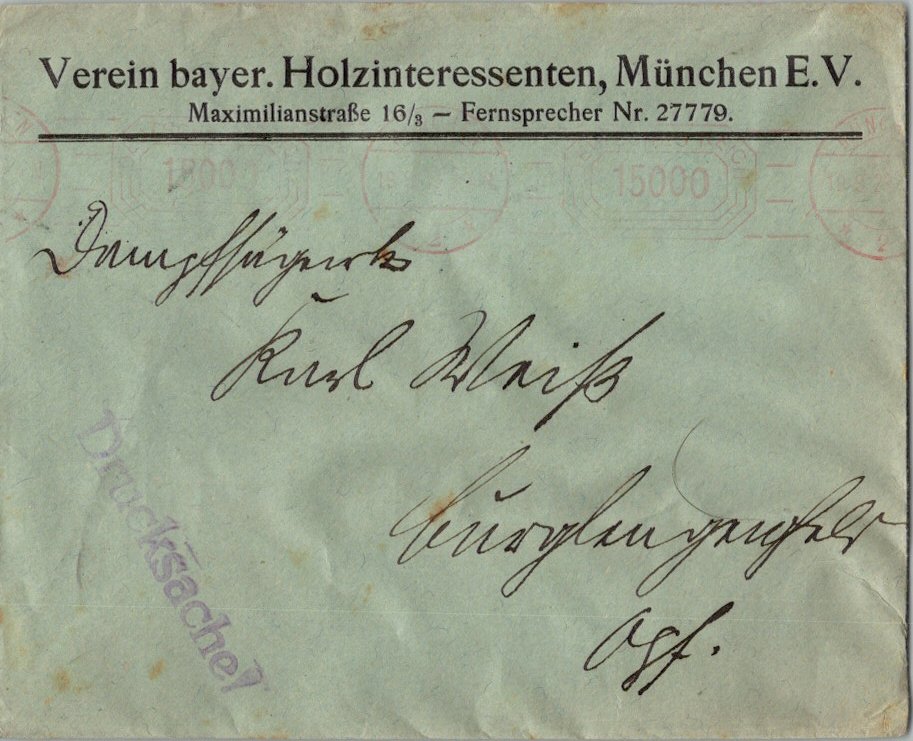 Verein bayer. Holzinteressenten, München E.V.
Maximilianstraße 16/3 — Fernsprecher Nr. 27779.
15000 15000
Dampfsägewerk
Karl Weiß
Burglengenfeld
Opf.
Drucksache!